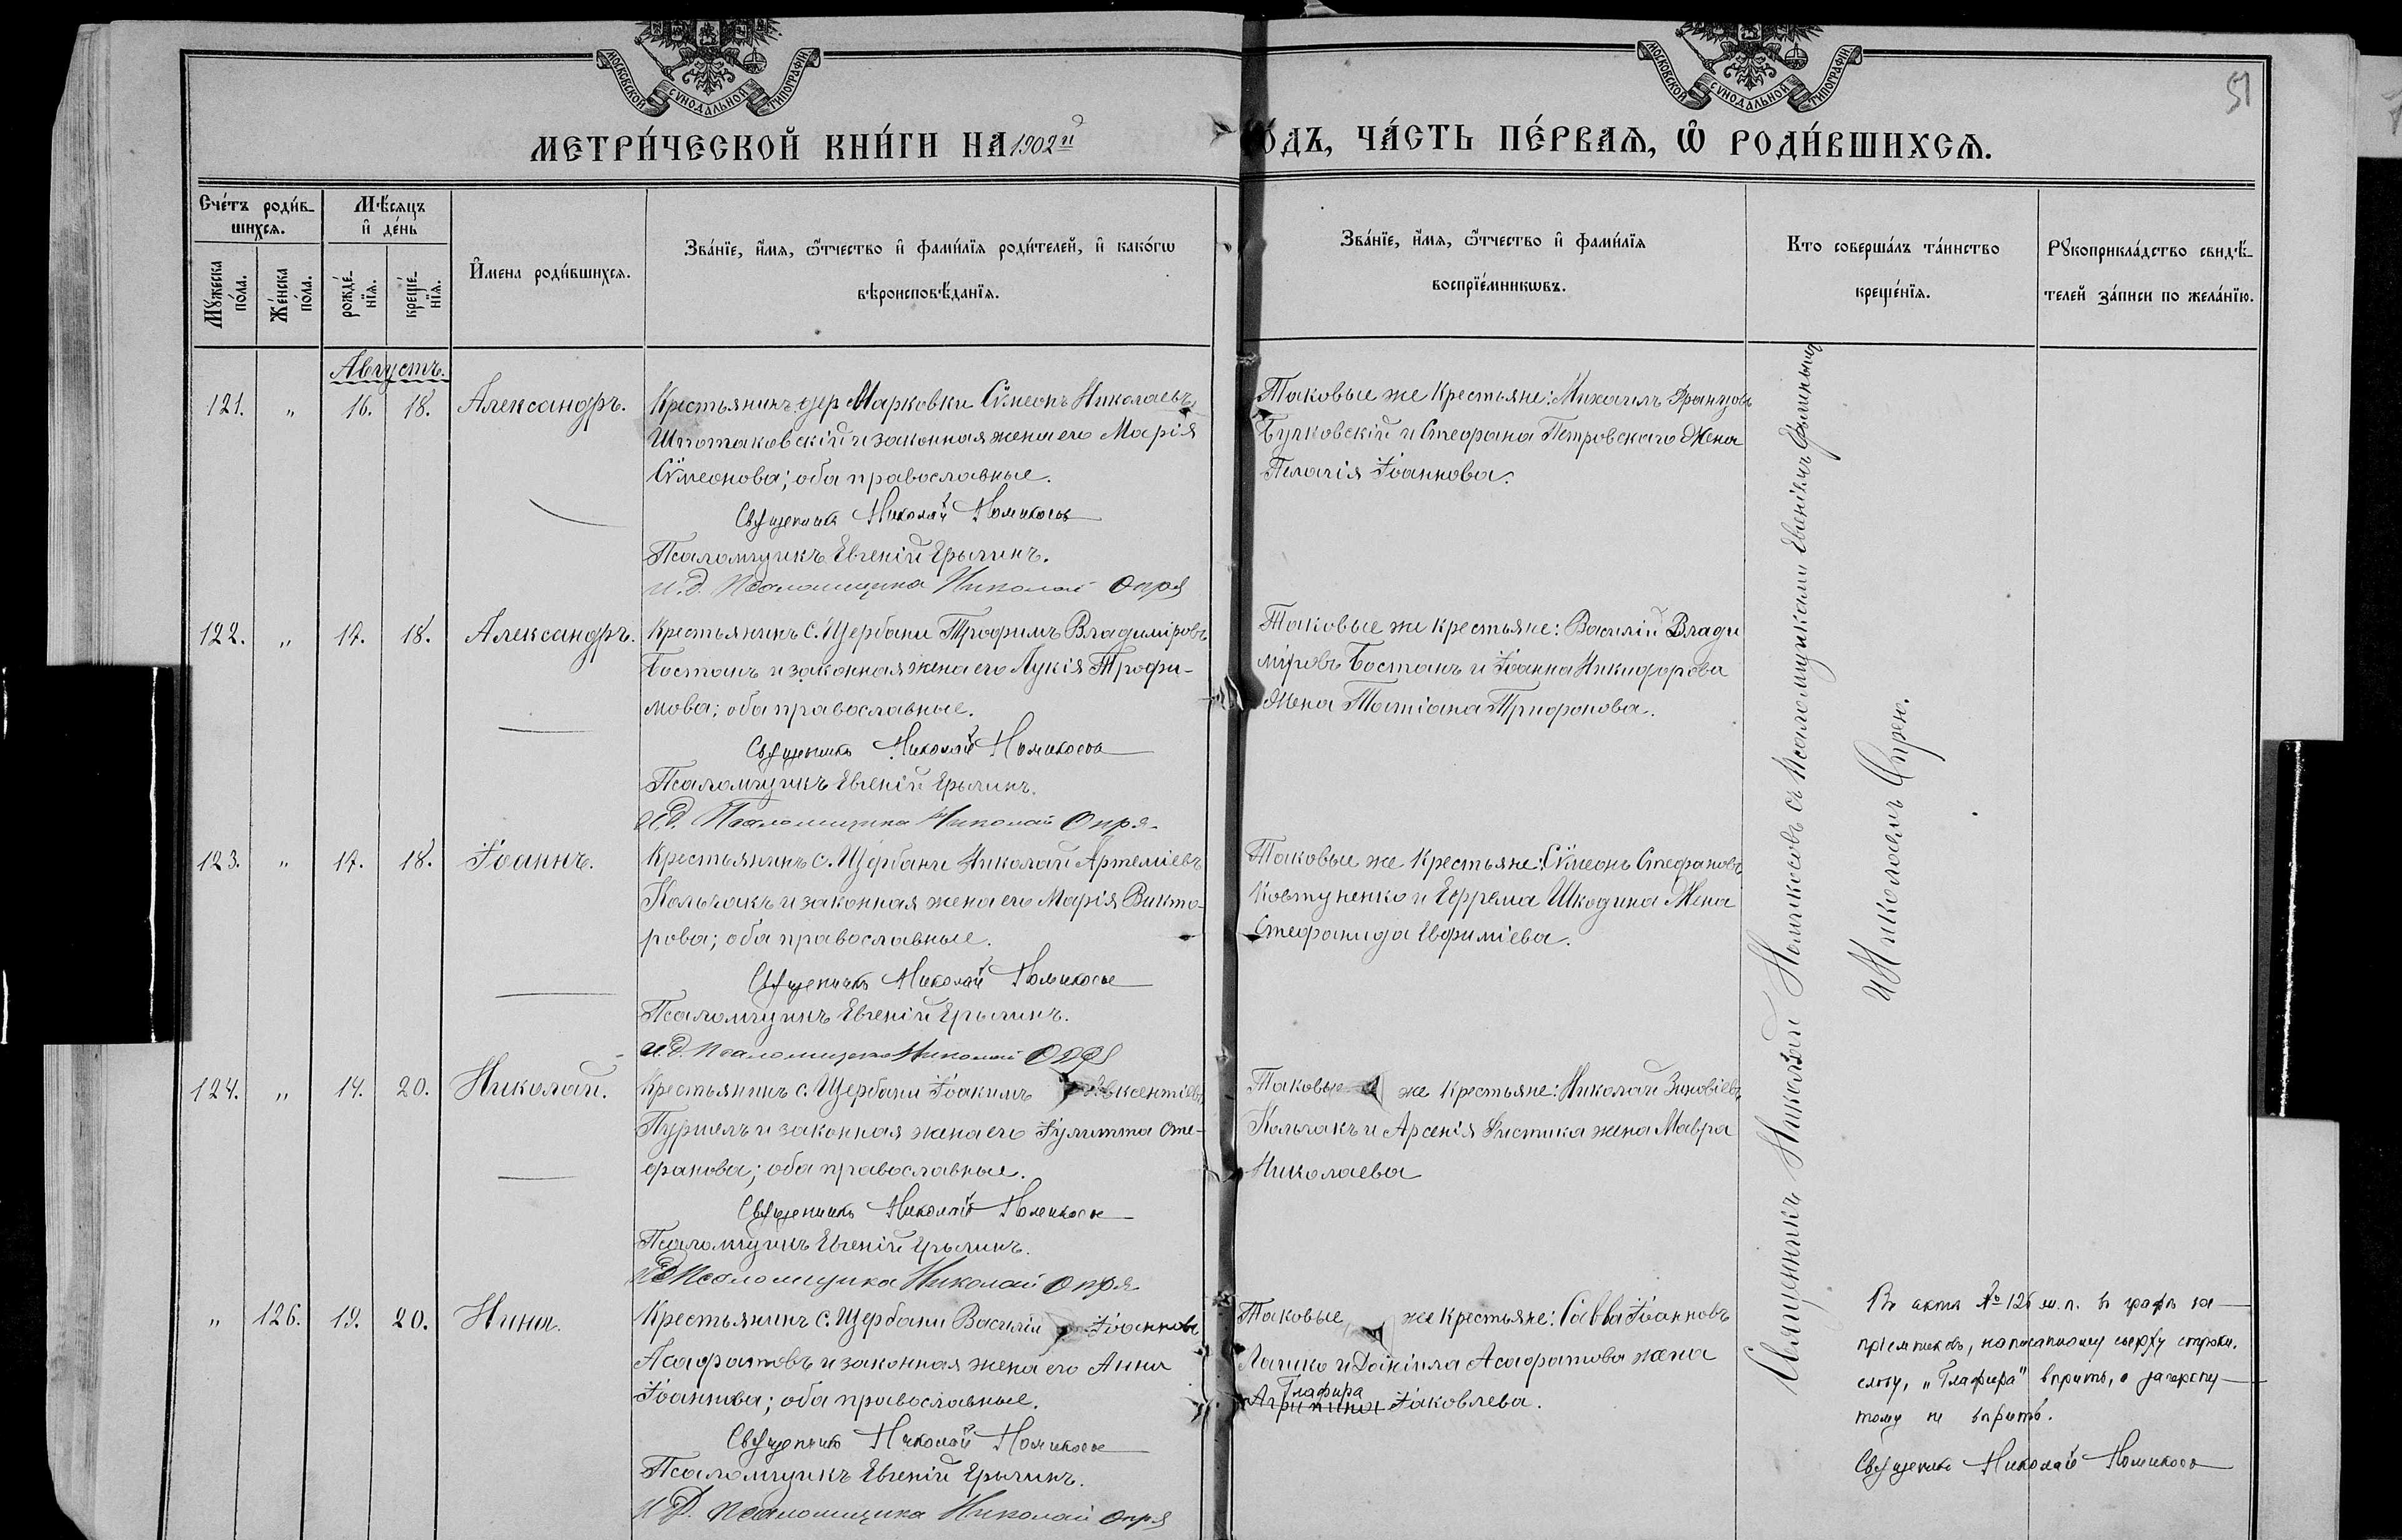 МОСКОВСКОЙ СѴНОДАЛЬНОЙ ТИПОГРАФІИ
МОСКОВСКОЙ СѴНОДАЛЬНОЙ ТИПОГРАФІИ
51
МЕТРИ́ЧЕСКОЙ КНИ́ГИ НА 1902й
ОДЪ, ЧА́СТЬ ПЕ́РВАѦ, Ѡ҆ РОДИ́ВШИХСѦ.
Сче́тъ роди́в-
шихсѧ.
Мꙋ́жеска по́ла.
Же́нска по́ла.
Мѣ́сѧцъ
и҆ де́нь
рожде́-
нїѧ.
креще́-
нїѧ.
И҆мена роди́вшихсѧ.
Зва́нїе, и҆́мѧ, ѻ҆́тчество и҆ фами́лїѧ роди́телей, и҆ како́гѡ
вѣроисповѣ́данїѧ.
Зва́нїе, и҆́мѧ, ѻ҆́тчество и҆ фами́лїѧ
воспрїе́мникѡвъ.
Кто соверша́лъ та́инство
креще́нїѧ.
Рꙋкоприкла́дство свидѣ́-
телей за́писи по жела́нїю.
Августъ.
121. " 16. 18. Александръ.
Крестьянинъ дер Марковки Сѵмеонъ Николаевъ
Шпотаковскій и законная жена его Марія
Сѵмеонова; оба православные.
Священникъ Николай Номикосов
Псаломщикъ Евгеній Ерылинъ.
И.д. Псаломщика Николай Опря
Таковые же Крестьяне: Михаилъ Францовъ
Бучковскій и Стефана Петровскаго Жена
Пелагія Іоаннова.
122. " 17. 18. Александръ.
Крестьянинъ с. Щербани Трофимъ Владиміровъ
Бостанъ и законная жена его Лукія Трофи-
мова; оба православные.
Священникъ Николай Номикосов
Псаломщикъ Евгеній Ерылинъ.
И.д. Псаломщика Николай Опря
Таковые же крестьяне: Василій Влади
міровъ Бостанъ и Іоанна Никифорова
Жена Татіана Трифонова.
123. " 17. 18. Іоаннъ.
Крестьянинъ с. Щербани Николай Артеміевъ
Кольчакъ и законная жена его Марія Викто-
рова; оба православные.
Священникъ Николай Номикосов
Псаломщикъ Евгеній Ерылинъ.
И.д. Псаломщика Николай Опря
Таковые же Крестьяне: Сѵмеонъ Стефановъ
Ковтуненко и Ефрема Шкодина Жена
Стефанида Евфиміева.
124. " 14. 20. Николай.
Крестьянинъ с. Щербани Іоакимъ Авксентіевъ
Пуршелъ и законная жена его Іулитта Сте-
фанова; оба православные.
Священникъ Николай Номикосов
Псаломщикъ Евгеній Ерылинъ.
И.д. Псаломщика Николай Опря
Таковые же крестьяне: Николай Зиновіевъ
Кольчакъ и Арсенія Листика жена Мавра
Николаева
" 126. 19. 20. Нина.
Крестьянинъ с. Щербани Василій Іоанновъ
Асафатовъ и законная жена его Анна
Іоаннова; оба православные.
Священникъ Николай Номикосов
Псаломщикъ Евгеній Ерылинъ.
И.д. Псаломщика Николай Опря
Таковые же Крестьяне: Савва Іоанновъ
Лашко и Даніила Асафатова жена
Глафира
Агрипина Іаковлева.
Священникъ Николай Номикосовъ съ Псаломщиками Евгеніемъ Ерылинымъ
и Николаемъ Опрею.
Въ актѣ № 126 ж. п. въ графѣ во-
пріемниковъ, написанному сверху строки,
слову, "Глафира" вѣрить, а зачеркну-
тому не вѣрить.
Священникъ Николай Номикосов